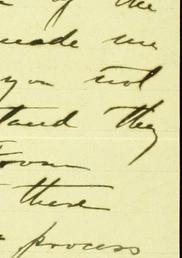 of the
made me
you not
stand they
From
there
process